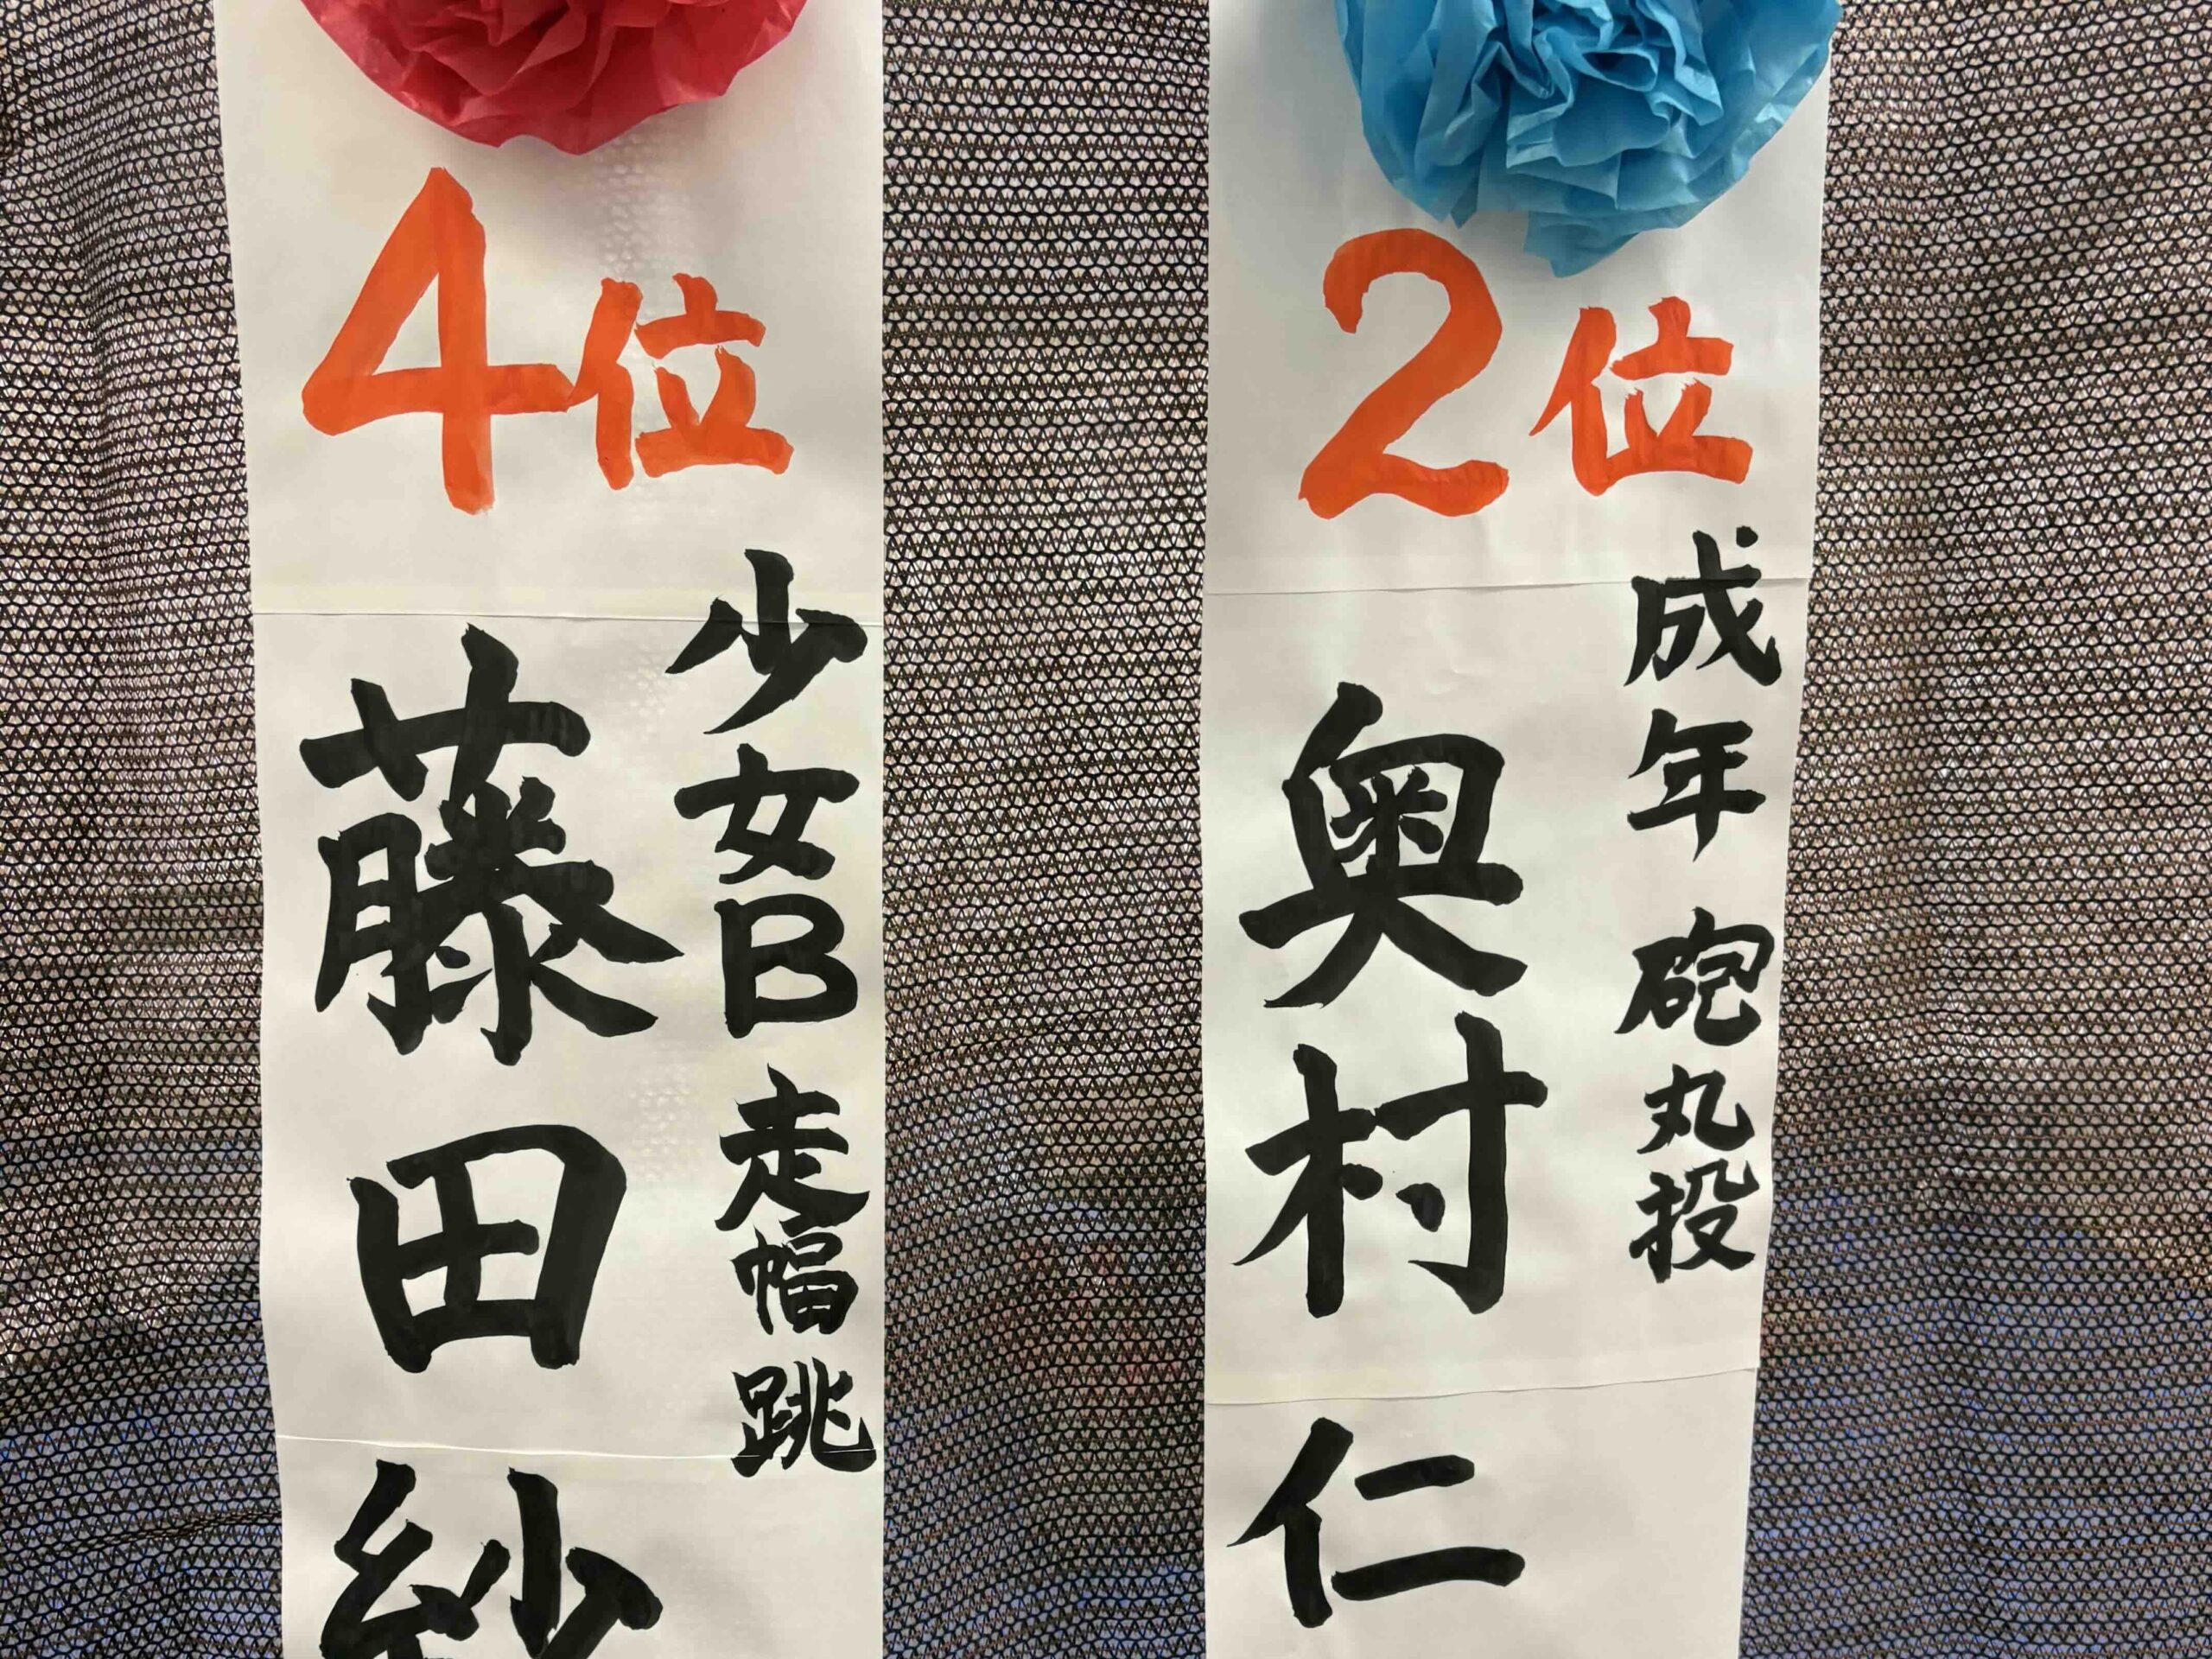 2位
成年 砲丸投
奥村仁
4位
少女B 走幅跳
藤田紗